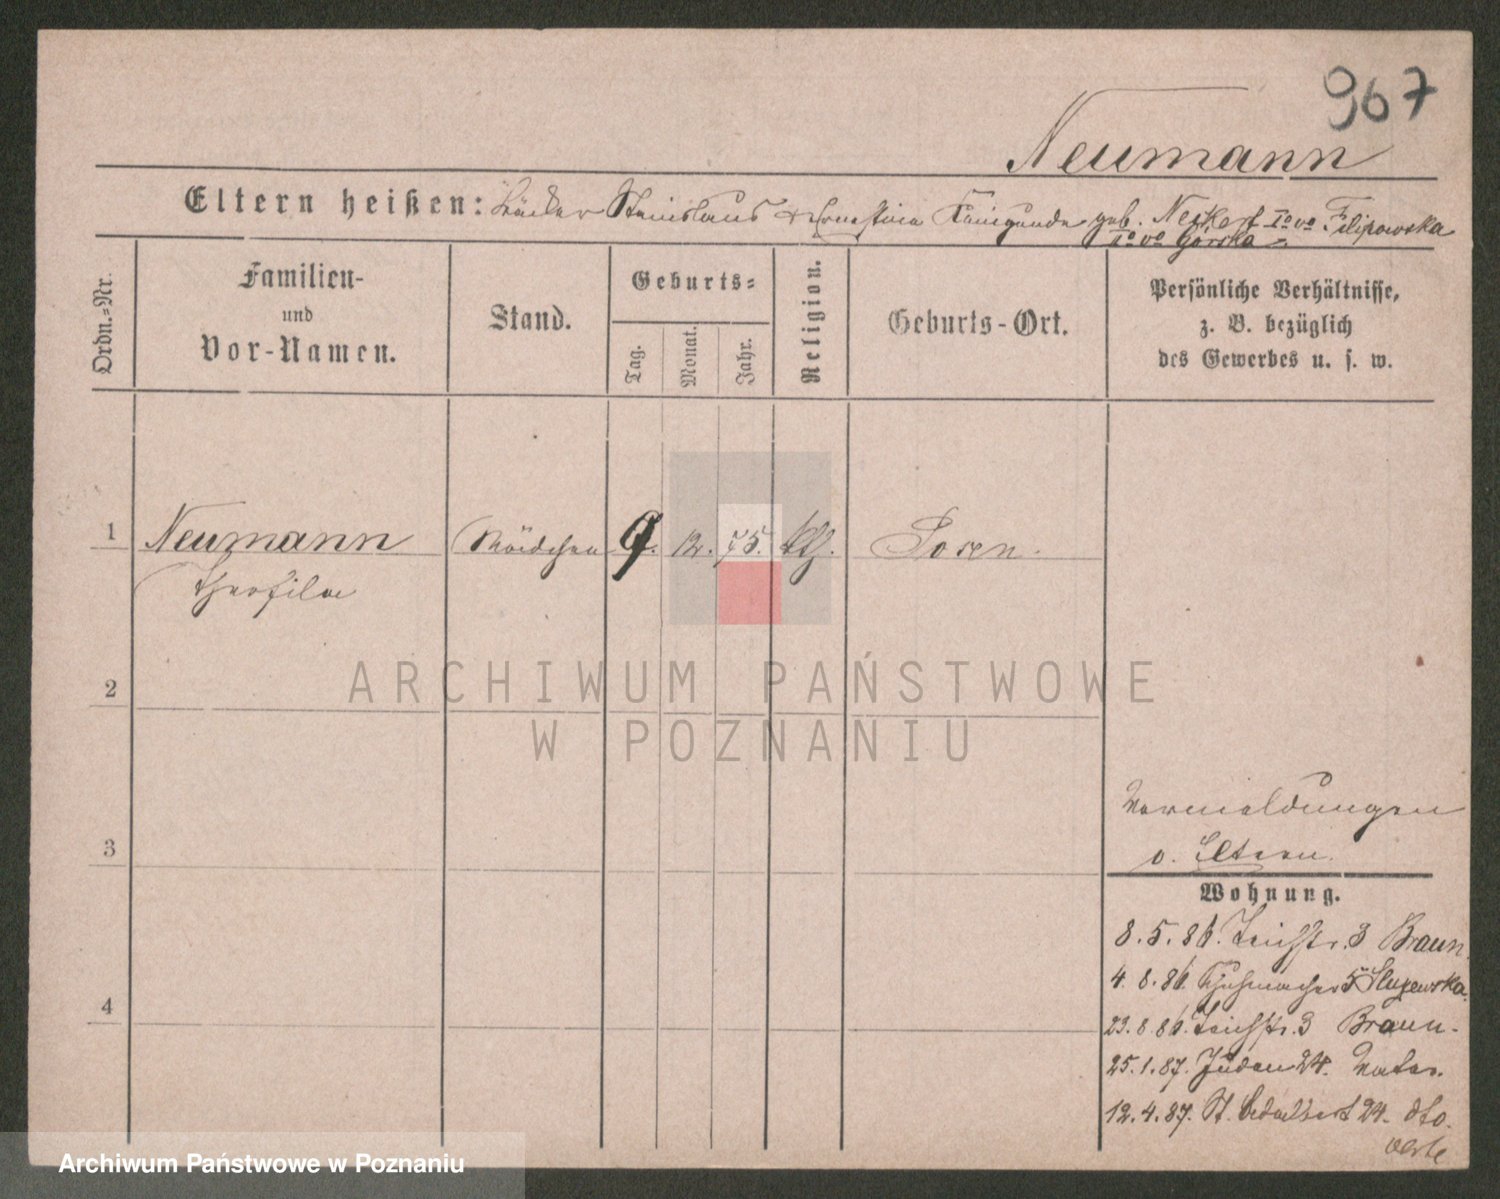 967
Neumann
Eltern heißen: Bäcker Stanislaus & Ernestina Kunigunde geb. Neukerf Io vo Filipowska
Io vo Górska
Ordn.-Nr.
Familien-
und
Vor-Namen.
Stand.
Geburts-
Tag.
Monat.
Jahr.
Religion.
Geburts-Ort.
Persönliche Verhältnisse,
z. B. bezüglich
des Gewerbes u. s. w.
1 Neumann Mädchen 9. 12. 75. kth. Posen.
Theofila
2
ARCHIWUM PAŃSTWOWE
W POZNANIU
3
4
Vermeldungen
v. Eltern.
Wohnung.
8.5.86. Teichstr. 3 Braun.
4.8.86. Schuhmacher 5 Slupewska.
23.8.86. Teichstr. 3 Braun.
25.1.87. Juden 24. Vater.
12.4.87. St. Adalbert 24. dto.
Archiwum Państwowe w Poznaniu